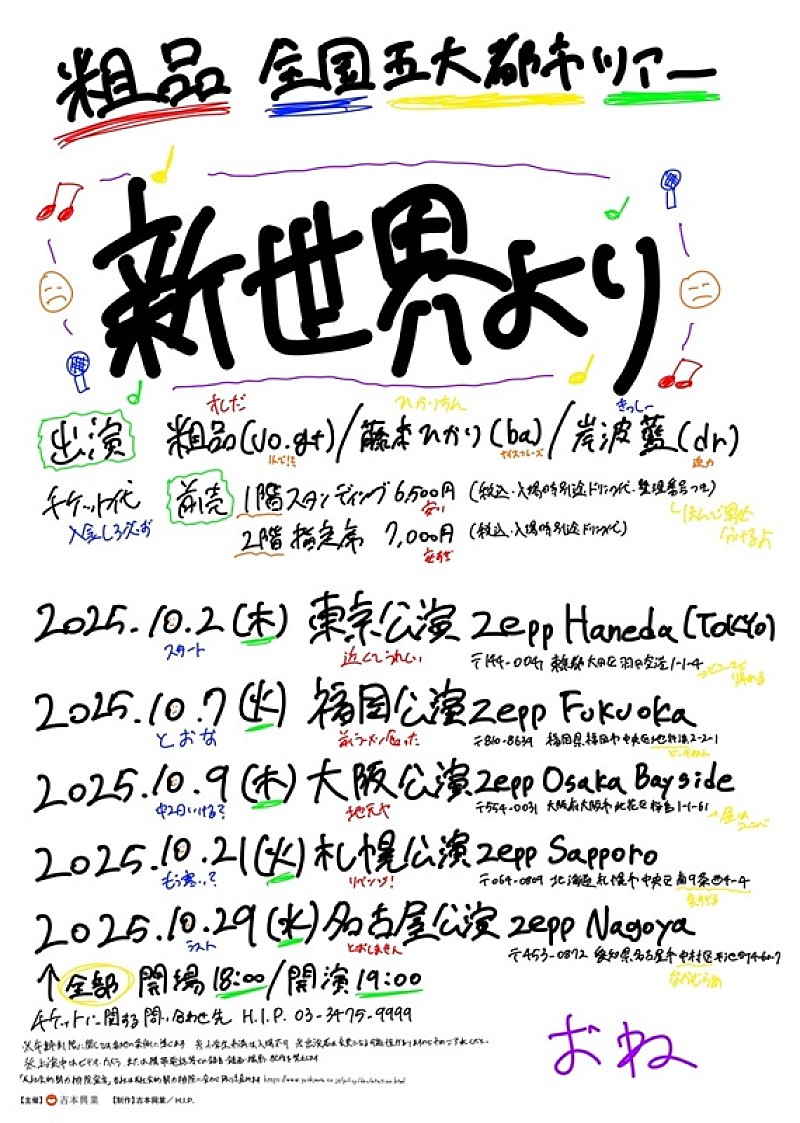 粗品 全国五大都市ツアー
新世界より
そしだ ひかりちゃん きっしー
出演 粗品(vo.gt)/藤本ひかり(ba)/岸波藍(dr)
ナイスフレーズ 迫力
チケット代 前売 1階スタンディング 6,500円 (税込・入場時別途ドリンク代・整理番号つき)
安い
2階指定席 7,000円 (税込・入場時別途ドリンク代)
2025.10.2(木) 東京公演 Zepp Haneda(TOKYO)
スタート 近くてうれしい 〒144-0041 東京都大田区羽田空港1-1-4
2025.10.7(火) 福岡公演 Zepp Fukuoka
とおな 〒810-8639 福岡県福岡市中央区地行浜2-2-1
2025.10.9(木) 大阪公演 Zepp Osaka Bayside
中2日いける? 地元や 〒554-0031 大阪府大阪市此花区桜島1-1-61
2025.10.21(火) 札幌公演 Zepp Sapporo
もう寒い? リベンジ! 〒064-0809 北海道札幌市中央区南9条西4-4
2025.10.29(水) 名古屋公演 Zepp Nagoya
ラスト とばしません 〒453-0872 愛知県名古屋市中村区平池町4-60-7
↑全部 開場18:00/開演19:00
チケットに関する問い合わせ先 H.I.P. 03-3475-9999
おね
【主催】吉本興業 【制作】吉本興業/H.I.P.